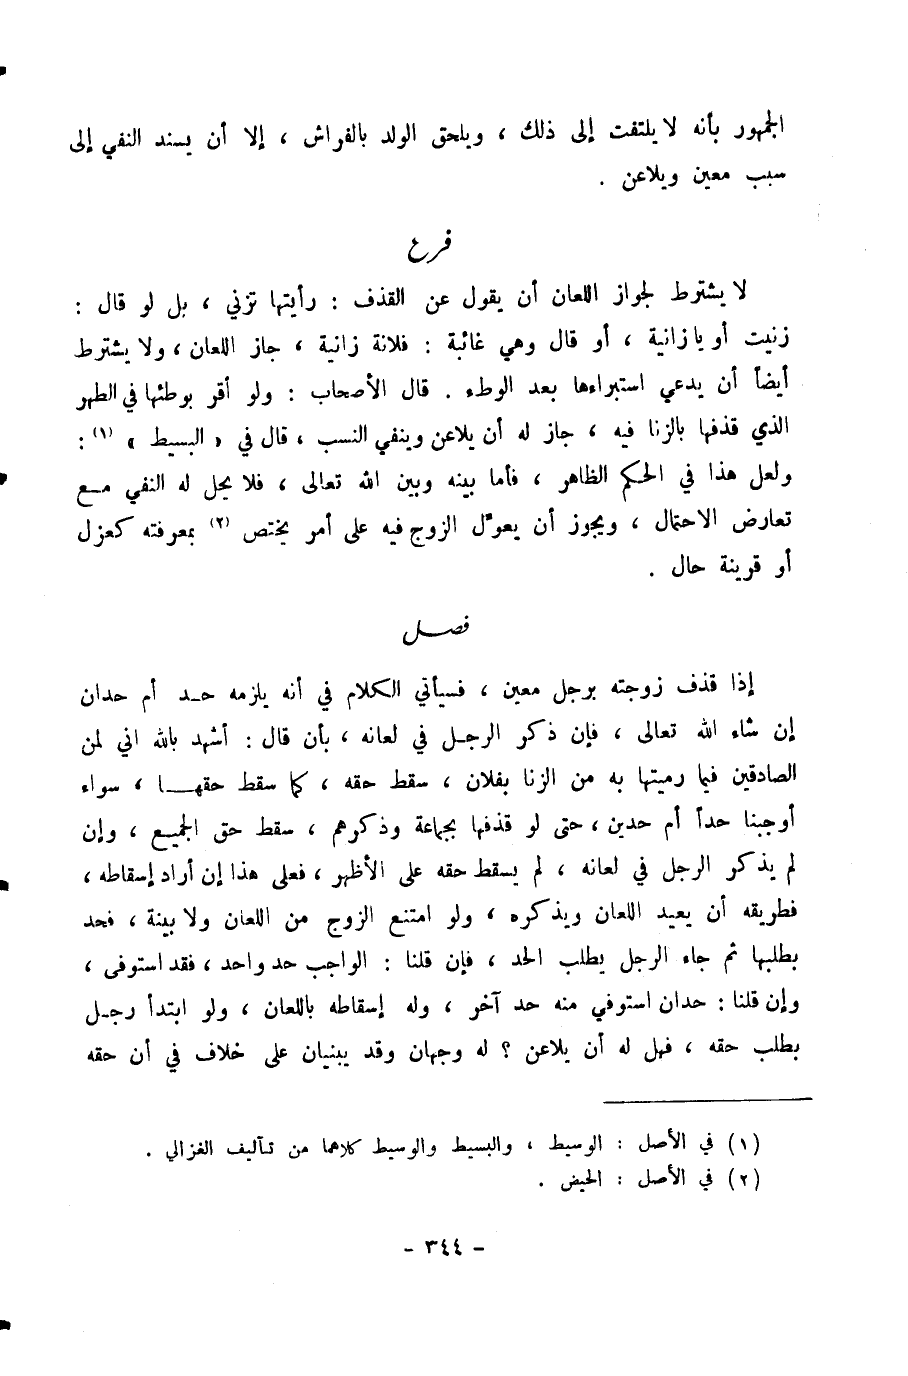 الجمهور بأنه لا يلتفت إلى ذلك ، ويلحق الولد بالفراش ، إلا أن يسند النفي إلى
سبب معين ويلاعن .
فرع
لا يشترط لجواز اللعان أن يقول عن القذف : رأيتها تزني ، بل لو قال :
زنيت أو يا زانية ، أو قال وهي غائبة : فلانة زانية ، جاز اللعان ، ولا يشترط
أيضاً أن يدعي استبراءها بعد الوطء . قال الأصحاب : ولو أقر بوطئها في الطهر
الذي قذفها بالزنا فيه ، جاز له أن يلاعن وينفي النسب ، قال في « البسيط » (١) :
ولعل هذا في الحكم الظاهر ، فأما بينه وبين الله تعالى ، فلا يحل له النفي مع
تعارض الاحتمال ، ويجوز أن يعوّل الزوج فيه على أمر يختص (٢) بمعرفته كعزل
أو قرينة حال .
فصل
إذا قذف زوجته برجل معين ، فسيأتي الكلام في أنه يلزمه حد أم حدان
إن شاء الله تعالى ، فإن ذكر الرجل في لعانه ، بأن قال : أشهد بالله اني لمن
الصادقين فيما رميتها به من الزنا بفلان ، سقط حقه ، كما سقط حقها ، سواء
أوجبنا حداً أم حدين ، حتى لو قذفها بجماعة وذكرهم ، سقط حق الجميع ، وإن
لم يذكر الرجل في لعانه ، لم يسقط حقه على الأظهر ، فعلى هذا إن أراد إسقاطه ،
فطريقه أن يعيد اللعان ويذكره ، ولو امتنع الزوج من اللعان ولا بينة ، فحد
بطلبها ثم جاء الرجل يطلب الحد ، فإن قلنا : الواجب حد واحد ، فقد استوفى ،
وإن قلنا : حدان استوفي منه حد آخر ، وله إسقاطه باللعان ، ولو ابتدأ رجل
بطلب حقه ، فهل له أن يلاعن ؟ له وجهان وقد يبنيان على خلاف في أن حقه
(١) في الأصل : الوسيط ، والبسيط والوسيط كلاهما من تآليف الغزالي .
(٢) في الأصل : الحيض .
- ٣٤٤ -